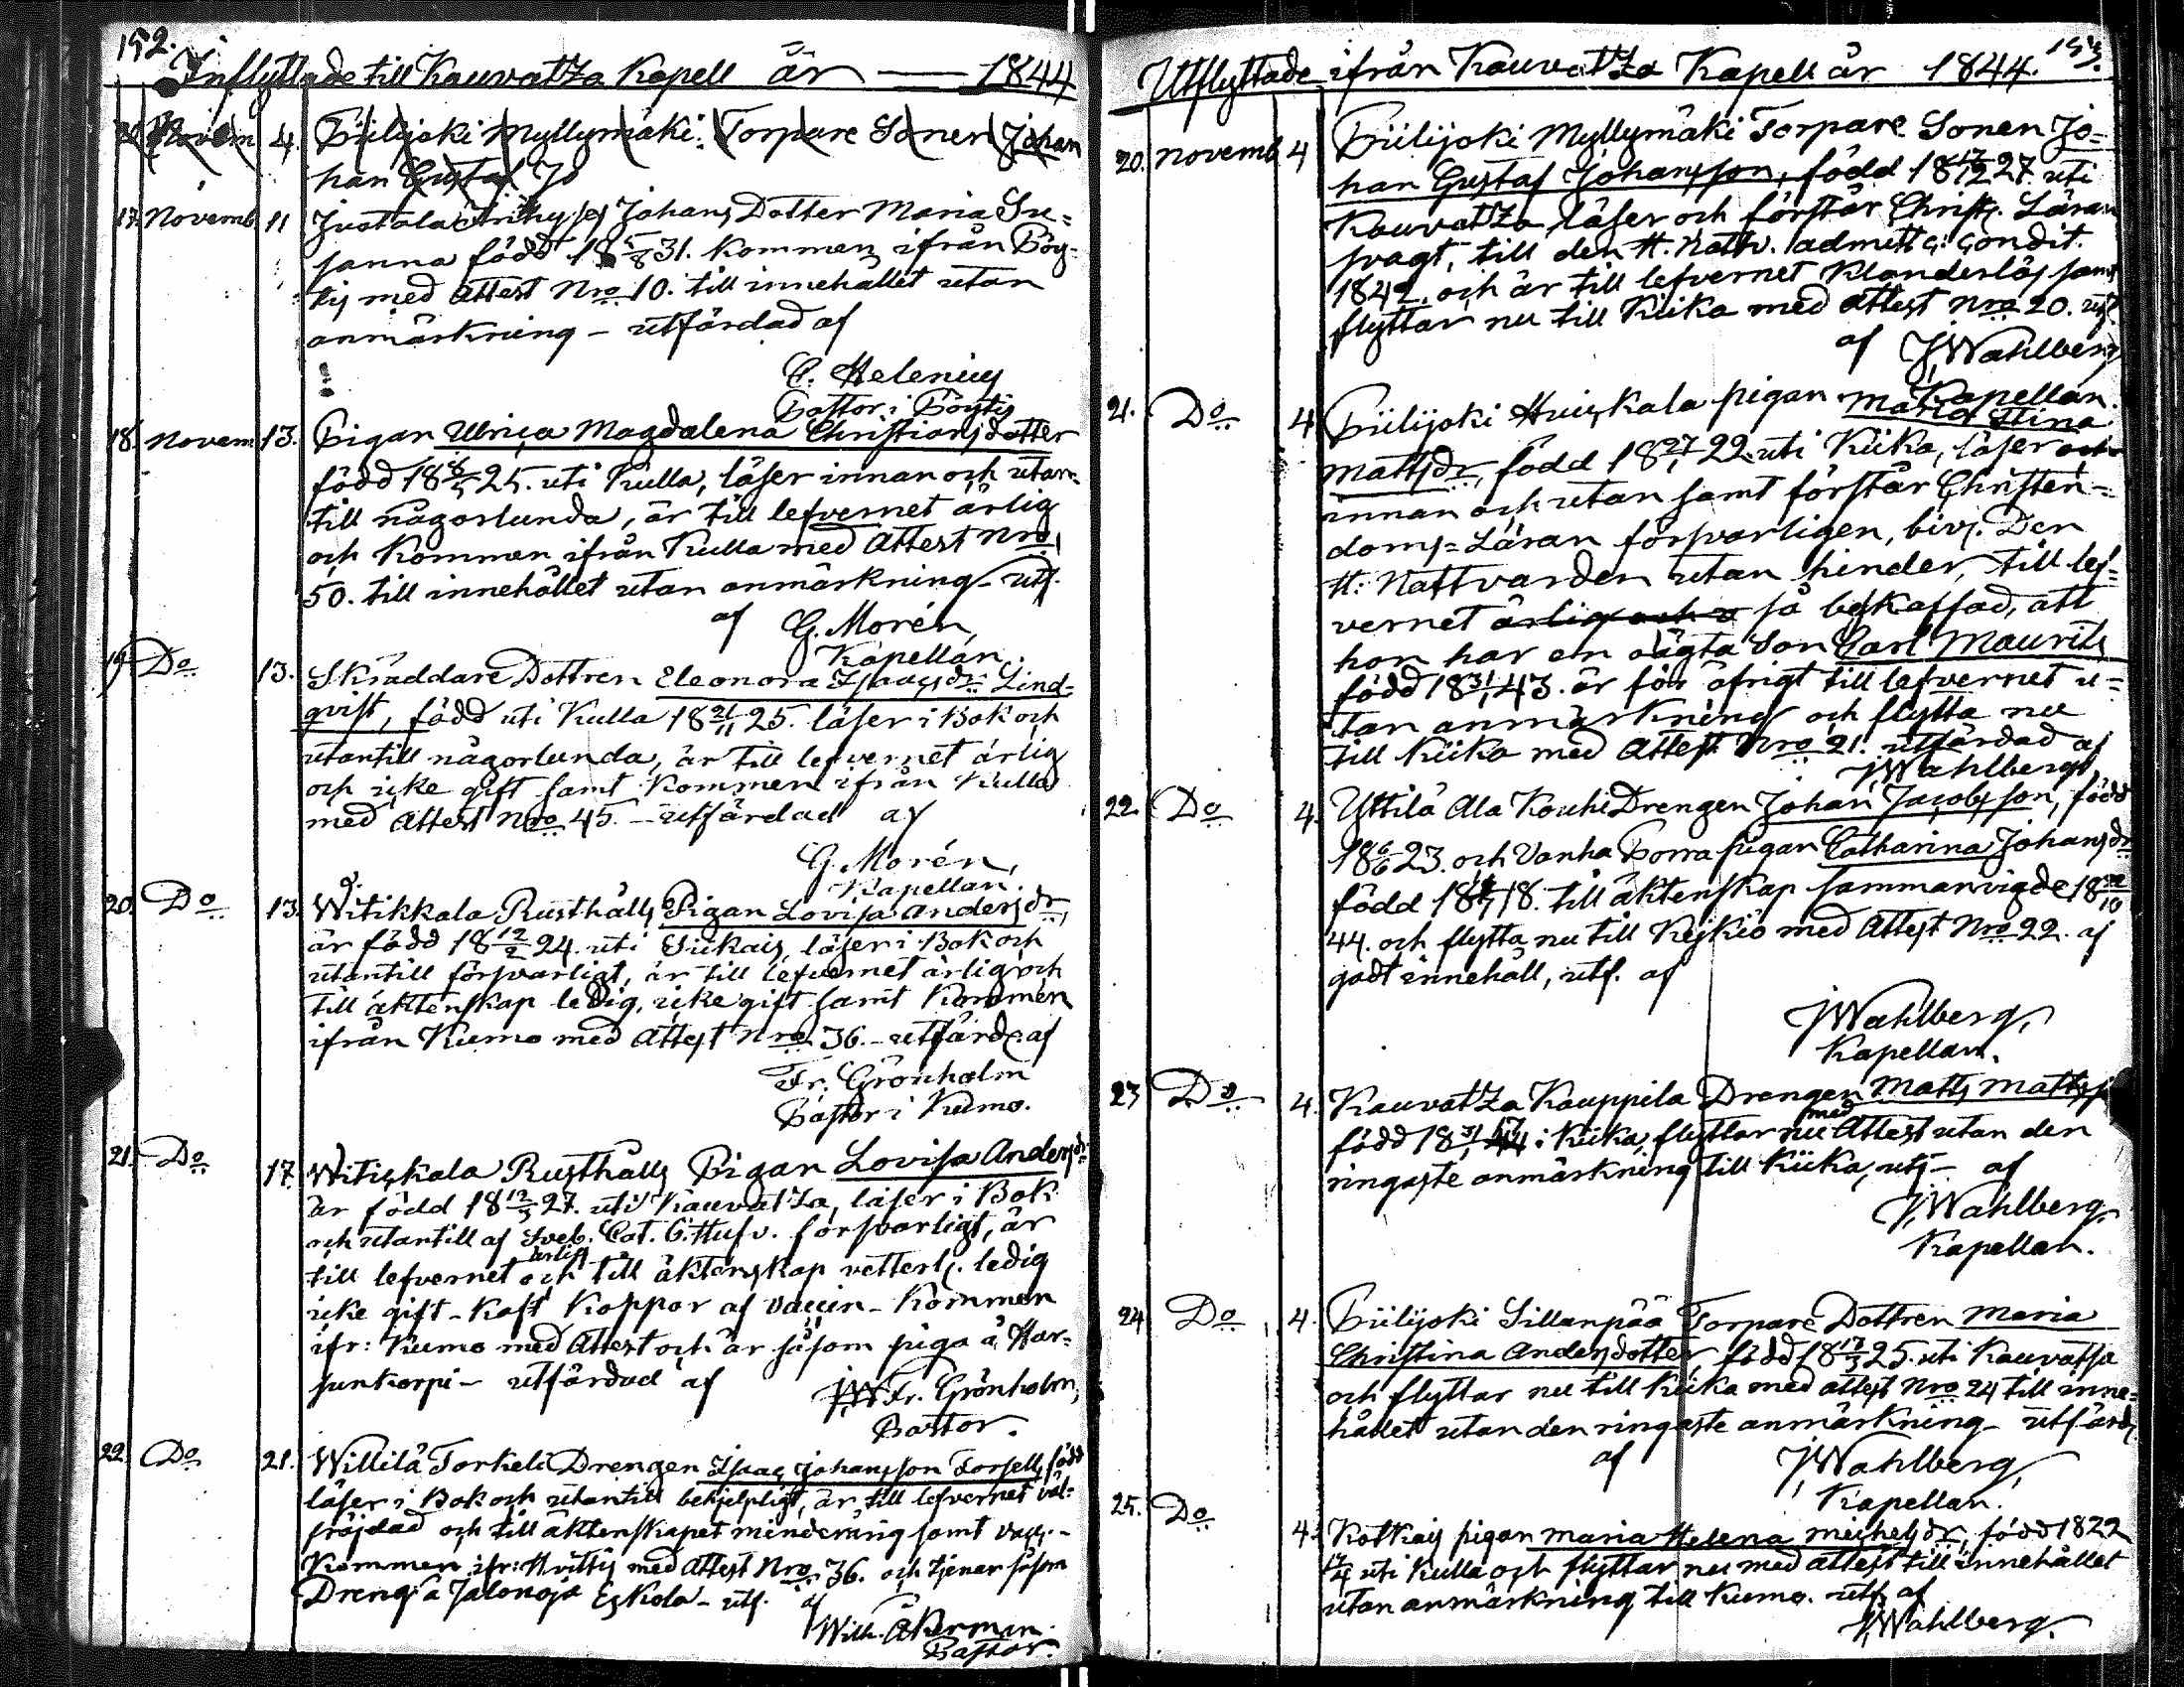 152.
Inflyttade till Kauvatza Kapell år — 1844
20. Novem 4. Piilijoki Myllymäki Torpare Sonen Johan
han Gustaf Jo
17. Novemb. 11 Justala Johans Dotter Maria Su=
sanna född 18 5/8 31. kommen ifrån Pöy-
tis med Attest Nro 10. till innehållet utan
anmärkning – utfärdad af
C. Helenius
Pastor i Pöytis
18. Novem 13. Pigan Ulrica Magdalena Christiansdotter
född 18 6/5 25. uti Kulla, läser innan och utan-
till någorlunda, är till lefvernet ärlig
och kommen ifrån Kulla med Attest Nro
50. till innehållet utan anmärkning – utf.
af G. Morén,
Kapellan.
19. Do 13. Skräddare Dottren Eleonora Isaacsdr Lind-
qvist, född uti Kulla 18 21/11 25. läser i Bok och
utantill någorlunda, är till lefvernet ärlig
och icke gift samt kommen ifrån Kulla
med Attest Nro 45. – utfärdad af
G. Morén,
Kapellan.
20. Do 13. Witikkala Rusthålls Pigan Lovisa Andersdr
är född 18 12/2 24. uti Siikais, läser i Bok och
utantill försvarligt, är till lefvernet ärlig och
till äktenskap ledig, icke gift samt kommen
ifrån Kumo med Attest Nro 36. – utfärd. af
Fr. Grönholm
Pastor i Kumo.
21. Do 17. Witickala Rusthålls Pigan Lovisa Andersdr
är född 18 12/3 27. uti Kauvatza, läser i Bok
och utantill af Sveb. Cat. G. Hufv. försvarligt, är
till lefvernet ärligt och till äktenskap vetterl. ledig
icke gift – haft koppor af vaccin – kommen
ifr: Kumo med Attest och är såsom piga å Har-
junkorpi – utfärdad af Fr. Grönholm,
Pastor.
22. Do 21. Willilä Torkeli Drengen Isaac Johansson Forsell, född
läser i Bok och utantill behjelpligt, är till lefvernet väl-
fräjdad och till äktenskapet minderårig samt vacc. –
Kommen ifr: Hvittis med Attest Nro 36. och tjenar såsom
Dreng å Jalonoja Eskola – utf. af
Wilh. Åkerman.
Pastor.
153.
Utflyttade ifrån Kauvatza Kapell år 1844.
20. Novemb 4 Piilijoki Myllymäki Torpare Sonen Jo=
han Gustaf Johansson, född 18 17/12 27. uti
Kauvatza, läser och förstår Christ. Läran
svagt, till den H. Nattv. admitt c: condit.
1842. och är till lefvernet klanderlös samt
flyttar nu till Kiika med Attest Nro 20. utf.
af J. Wahlberg
Kapellan.
21. Do 4. Piilijoki Huiskala pigan Maria Stina
Mattsdr, född 18 27/1 22 uti Kiika, läser och
innan och utan samt förstår Christen-
doms=Läran försvarligen, biv. Den
H: Nattvarden utan hinder, till lef-
vernet ärlig och a så beskaffad, att
hon har en oägta Son Carl Maurits
född 18 31/1 43. är för öfrigt till lefvernet u-
tan anmärkning och flytta nu
till Kiika med Attest Nro 21. utfärdad af
J Wahlberg
22. Do 4. Yttilä Ala Kouhi Drengen Johan Jacobsson, född
18 6/6 23. och Vanha Borra pigan Catharina Johansdr
född 18 18. till äktenskap sammanvigde 18 /10
44. och flytta nu till Keikiö med Attest Nro 22. af
godt innehåll, utf. af
J Wahlberg,
Kapellan.
23 Do 4. Kauvatza Kauppila Drengen Matts Mattss
född 18 31/1 i Kiika, flyttar nu med Attest utan den
ringaste anmärkning till Kiika, utf – af
J. Wahlberg.
Kapellan.
24 Do 4. Piilijoki Sillanpää Torpare Dottren Maria
Christina Andersdotter, född 18 17/3 25. uti Kauvatsa
och flyttar nu till Kiika med attest Nro 24 till inne-
hållet utan den ringaste anmärkning – utfärd.
af J. Wahlberg,
Kapellan.
25. Do 4. Kotkais pigan Maria Helena Michelsdr, född 1822
17/4 uti Kulla och flyttar nu med attest till innehållet
utan anmärkning till Kumo. utf. af
J. Wahlberg.